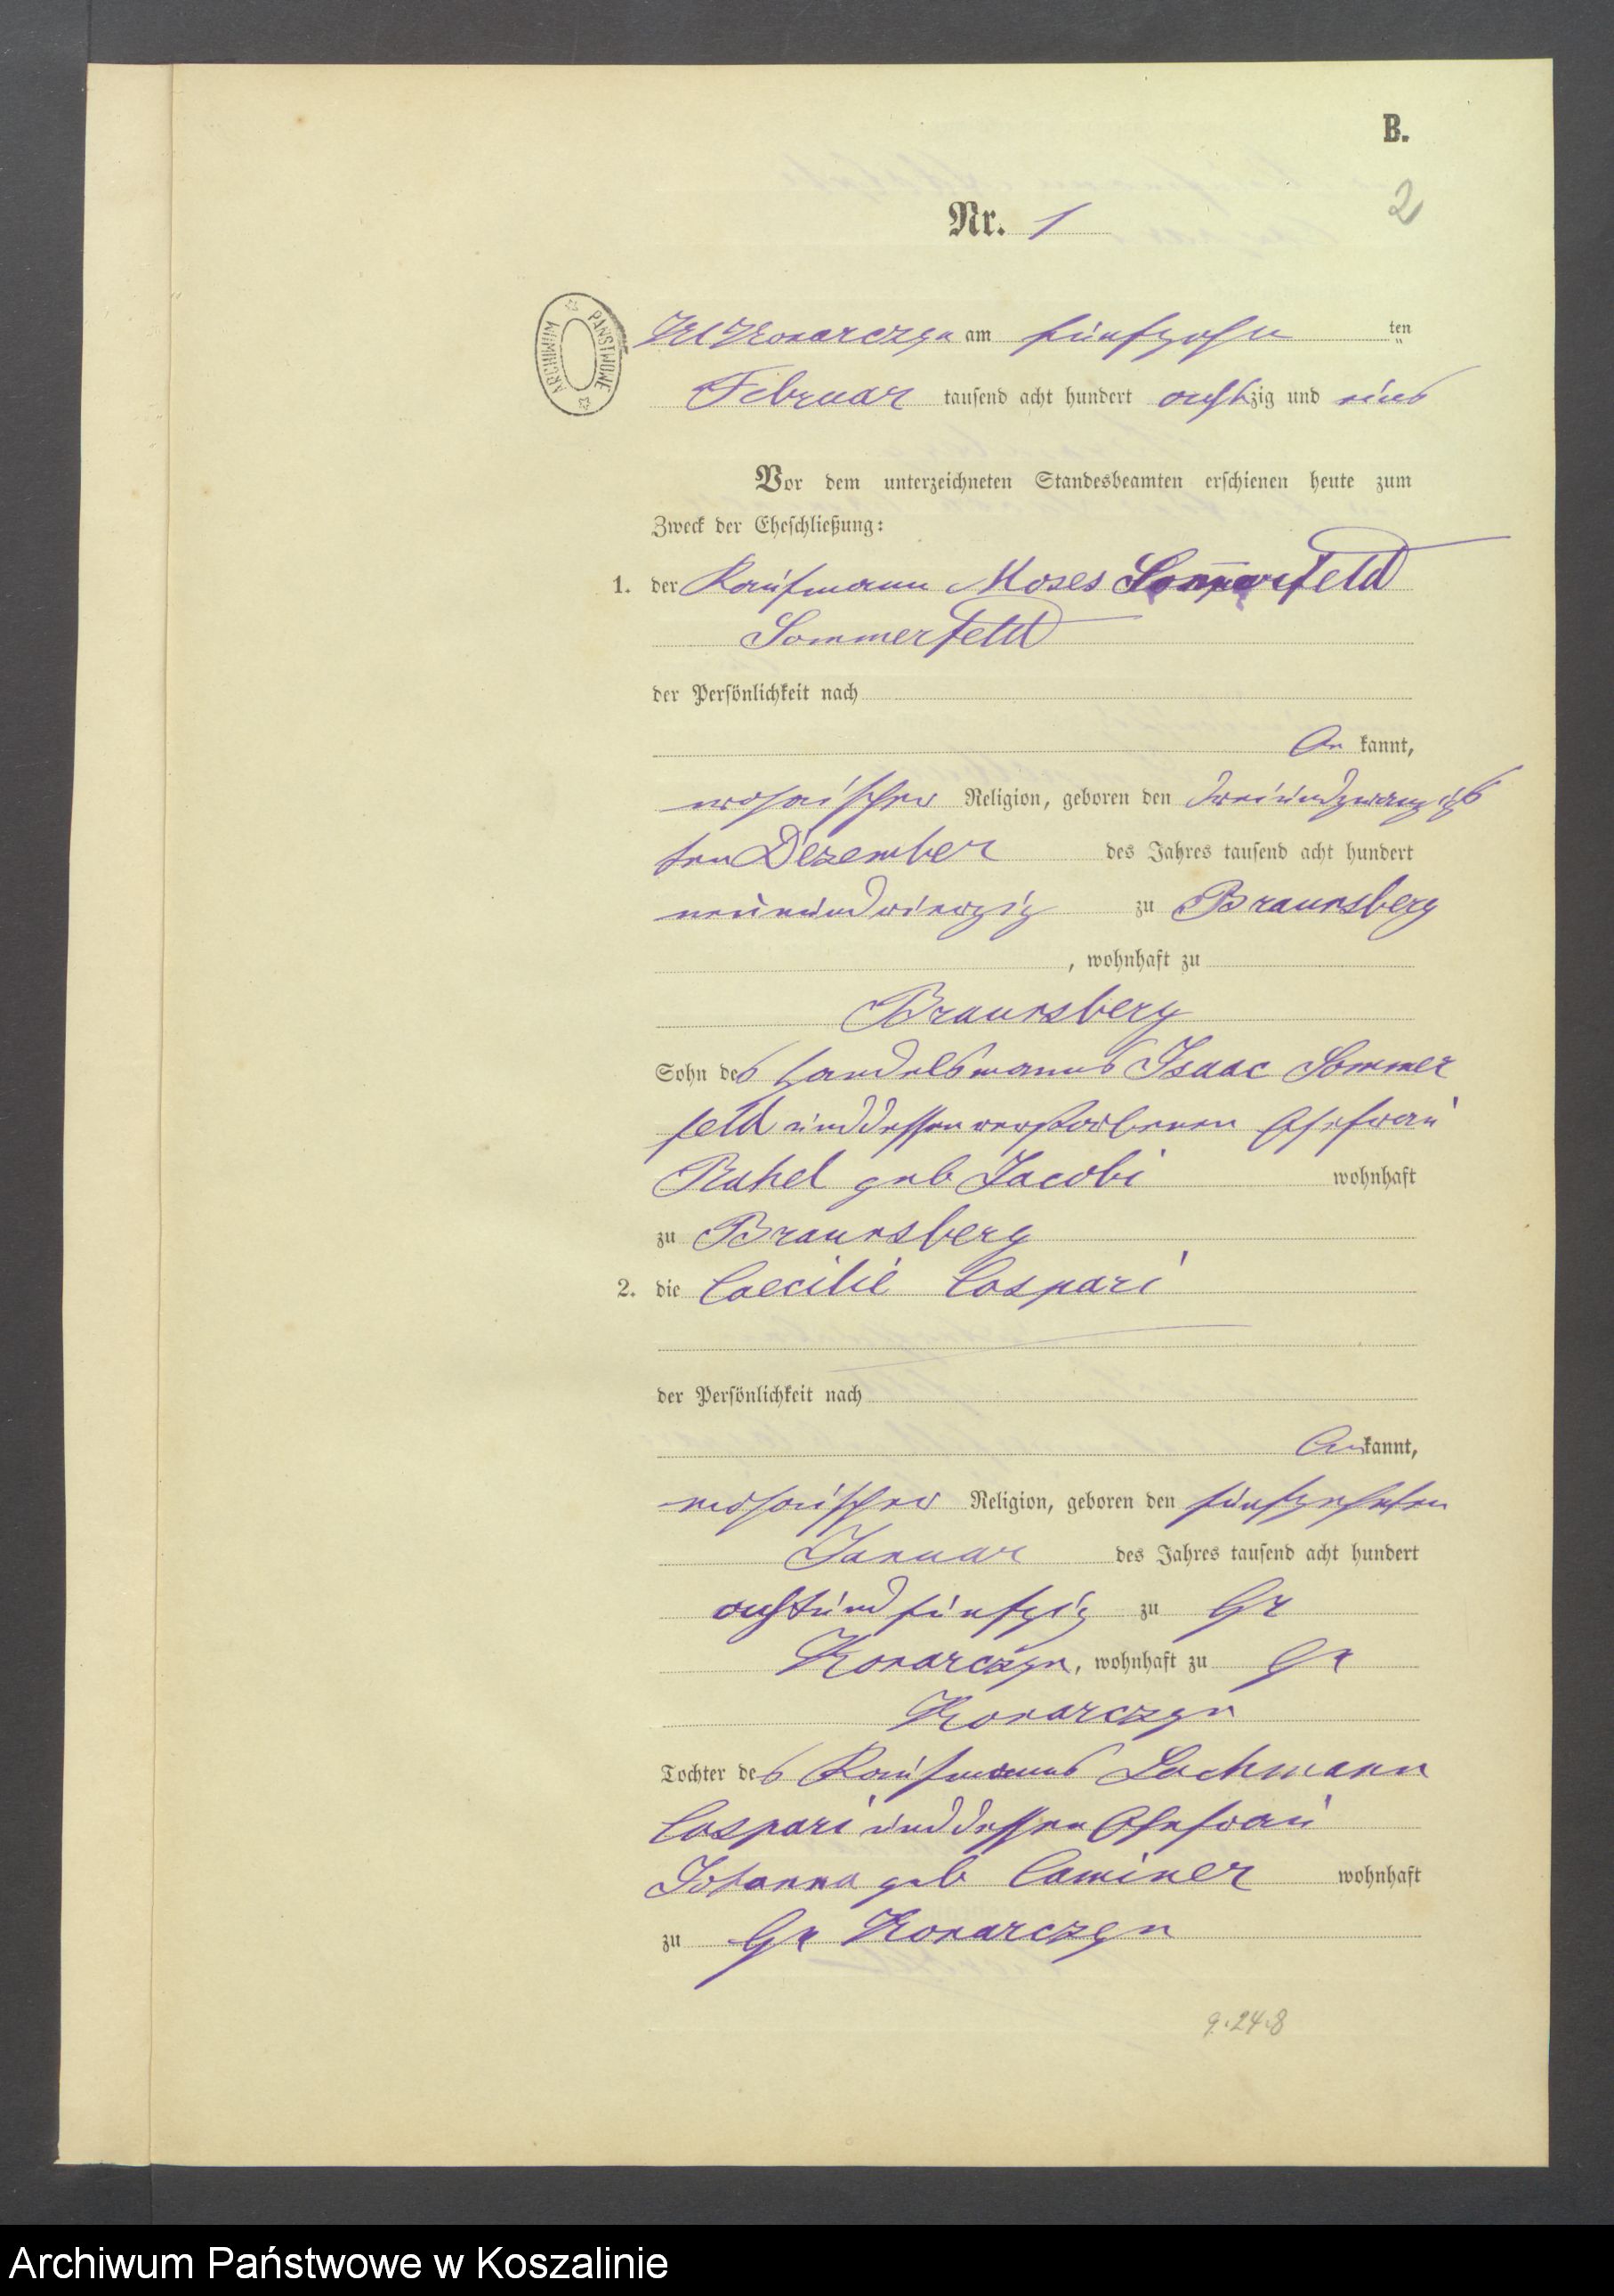 B.
2
Nr. 1
ARCHIWUM PAŃSTWOWE
Kl Konarczyn am fünfzehn ten
Februar tausend acht hundert achtzig und eins
Vor dem unterzeichneten Standesbeamten erschienen heute zum
Zweck der Eheschließung:
1. der Kaufmann Moses Sommerfeld
Sommerfeld
der Persönlichkeit nach
kannt,
mosaischer Religion, geboren den dreiundzwanzigs
ten Dezember des Jahres tausend acht hundert
neunundvierzig zu Braunsberg
, wohnhaft zu
Braunsberg
Sohn des Handelsmanns Isaac Sommer
feld und dessen verstorbenen Ehefrau
Rahel geb Jacobi wohnhaft
zu Braunsberg
2. die Caecilie Caspari
der Persönlichkeit nach
kannt,
mosaischer Religion, geboren den fünfzehnten
Januar des Jahres tausend acht hundert
achtundfünfzig zu Gr
Konarczyn, wohnhaft zu Gr
Konarczyn
Tochter des Kaufmanns Lachmann
Caspari und dessen Ehefrau
Johanna geb Caminer wohnhaft
zu Gr Konarczyn
9.24.8
Archiwum Państwowe w Koszalinie